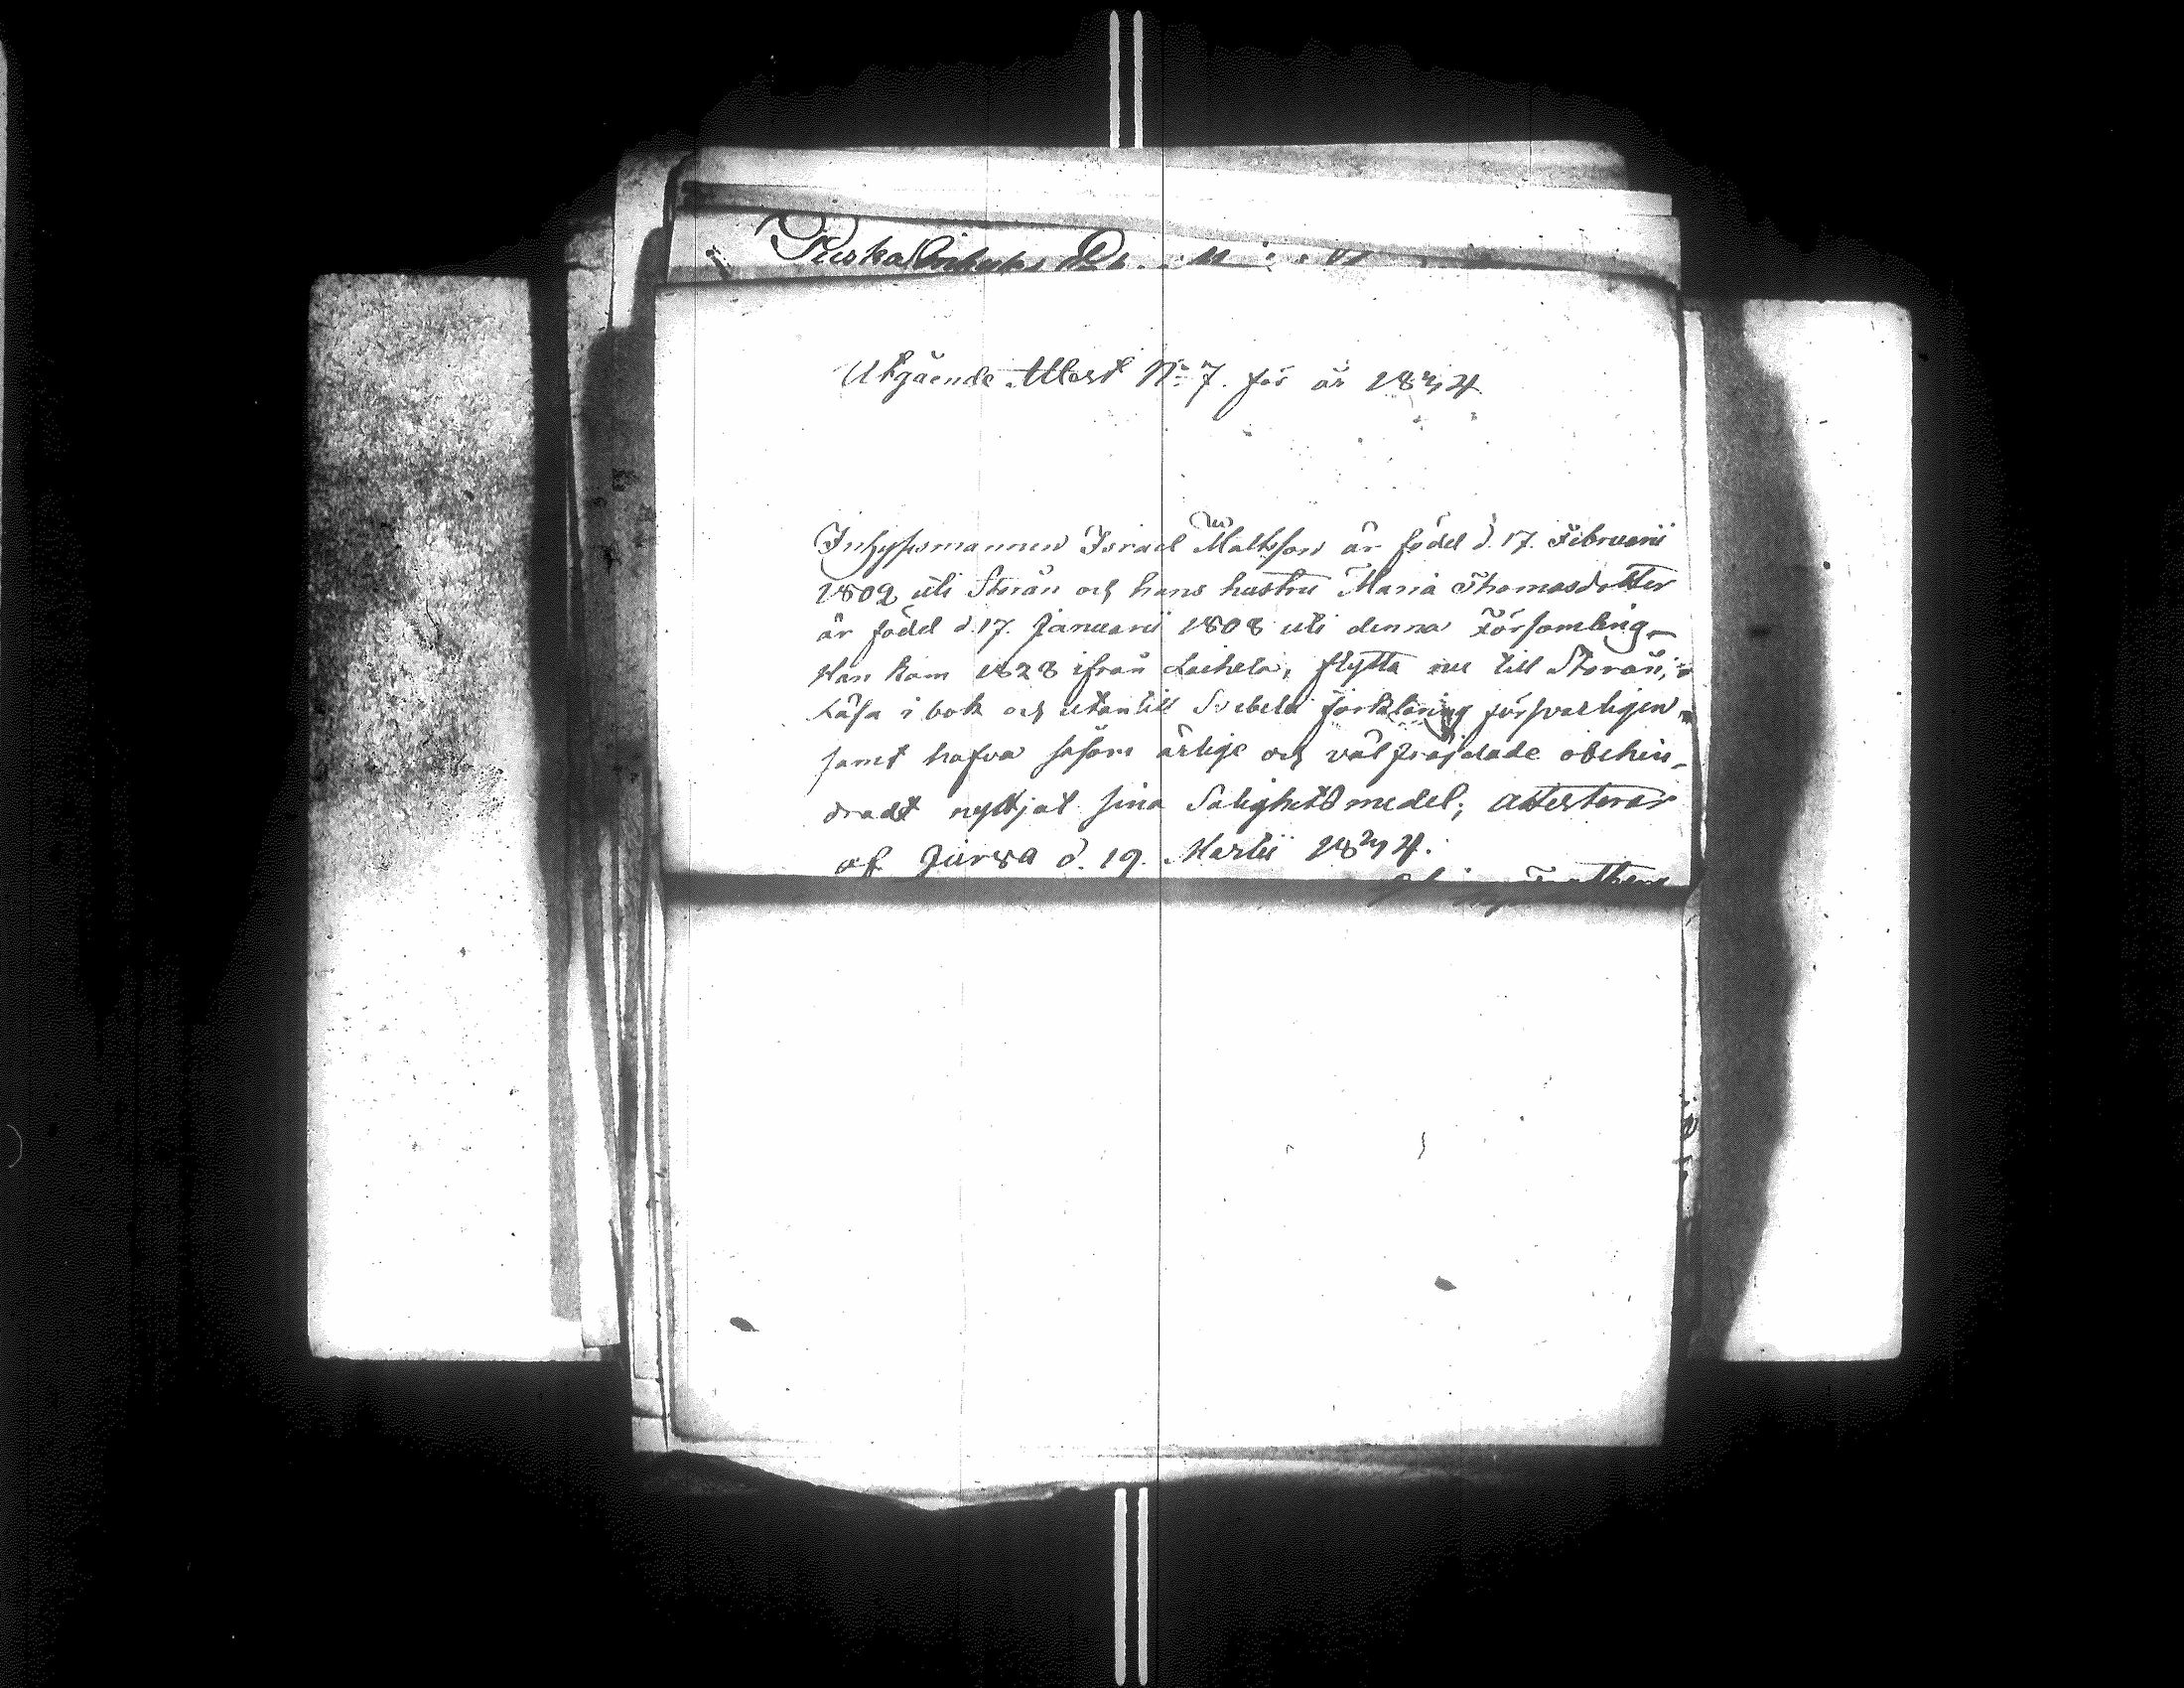 Utgående Attest No 7. för år 1834
Inhysesmannen Israel Mattsson är född d. 17. Februarii
1802 uti Storån och hans hustru Maria Thomasdotter
är född d. 17. Januarii 1808 uti denna Församling
Han kom 1828 ifrån Laihela, flytta nu till Storån,
Läsa i bok och utantill Svebelii förklaring försvarligen
samt hafva såsom ärlige och välfräjdade obehin-
dradt nyttjat sina Salighets medel; attesterar
af Jurva d. 19. Martii 1834.